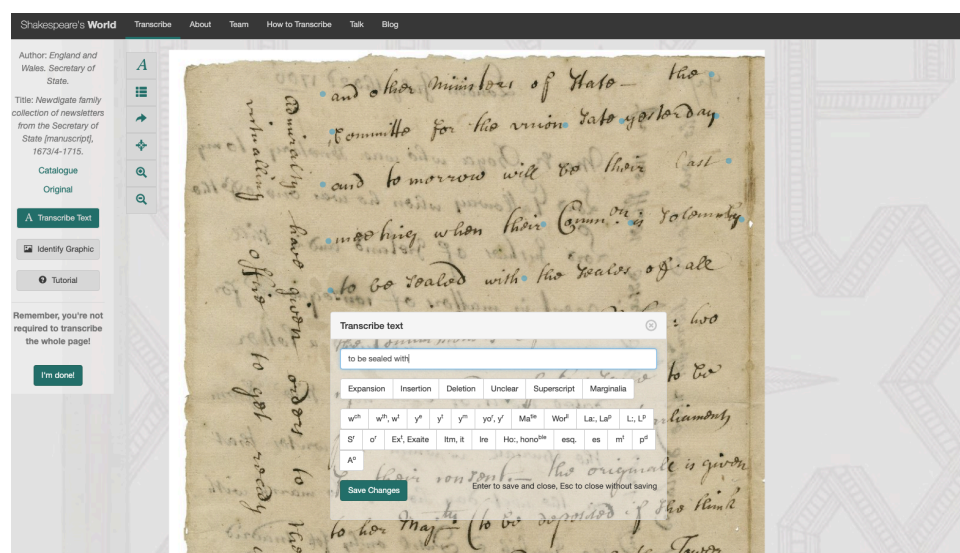 Shakespeare's World
Transcribe About Team How to Transcribe Talk Blog
Author: England and
Wales. Secretary of
State.
Title: Newdigate family
collection of newsletters
from the Secretary of
State [manuscript],
1673/4-1715.
Catalogue
Original
A Transcribe Text
Identify Graphic
Tutorial
Remember, you're not
required to transcribe
the whole page!
I'm done!
A
and other ministers of State— the
Committe for the union Sate yesterday
and to morrow will be their last
meeting when their Common is solemnly
to be sealed with the seales of all
two
to be
liaments
their consent. the originall is given
to her Majty (to be deposited if she think
Tower
admiraltye have given orders to the
victualling office to get ready
Transcribe text
to be sealed with
Expansion Insertion Deletion Unclear Superscript Marginalia
wch wth, wt ye yt ym yor, yr Matie Worll La:, Lap L:, Lp
Sr or Ext, Exaite Itm, it Ire Ho:, honoble esq. es mt pd
Ap
Save Changes
Enter to save and close, Esc to close without saving